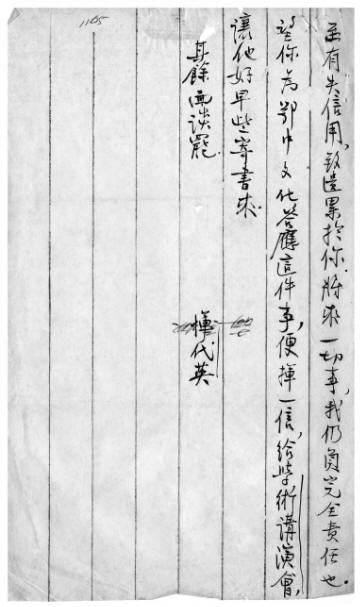 有失信用,致遺累於你.將來一切事,我仍負完全責任也.
望你為鄂中文化答應這件事,便揮一信,給學術講演會,
讓他好早些寄書來.
其餘面谈罷.
惲代英
1165